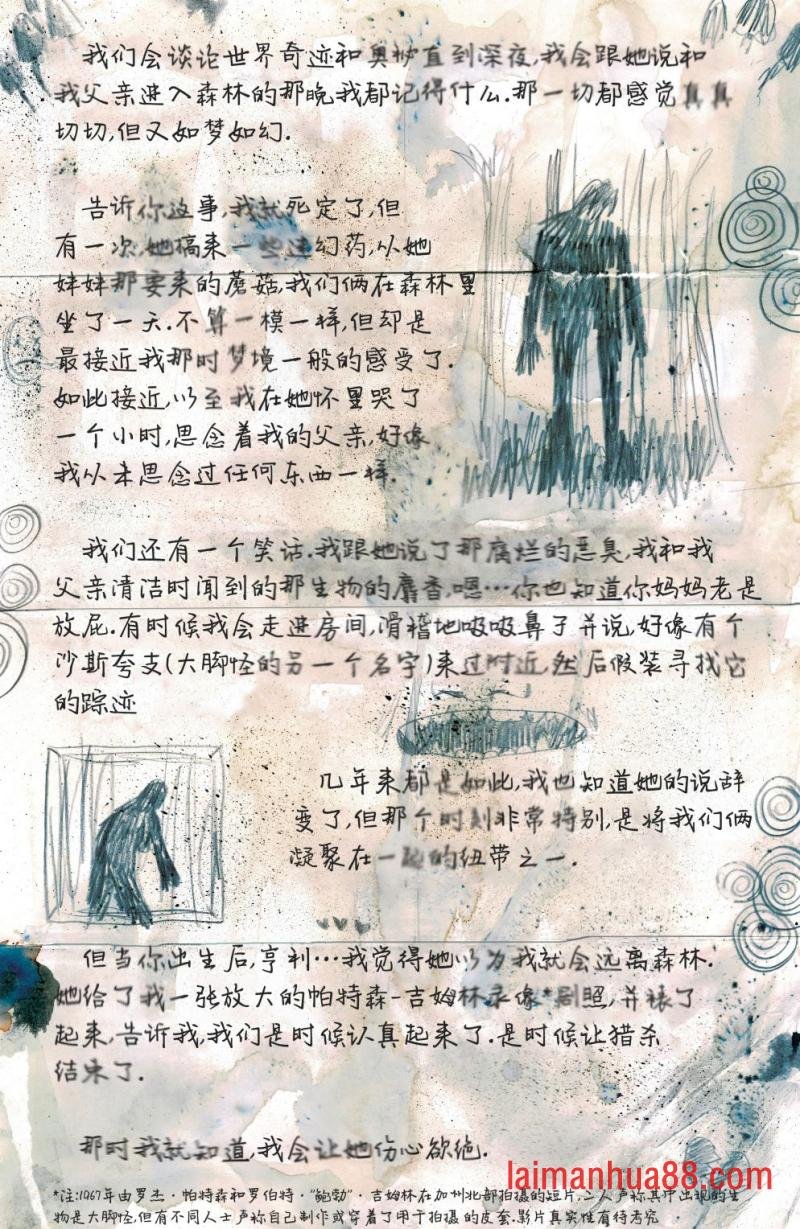 我们会谈论世界奇迹和奥妙直到深夜,我会跟她说和
我父亲进入森林的那晚我都记得什么.那一切都感觉真真
切切,但又如梦如幻.
告诉你这事,我就死定了,但
有一次,她搞来一些迷幻药,从她
妹妹那要来的蘑菇,我们俩在森林里
坐了一天.不算一模一样,但却是
最接近我那时梦境一般的感受了.
如此接近,以至我在她怀里哭了
一个小时,思念着我的父亲,好像
我从未思念过任何东西一样.
我们还有一个笑话.我跟她说了那腐烂的恶臭,我和我
父亲清洁时闻到的那生物的麝香,嗯…你也知道你妈妈老是
放屁.有时候我会走进房间,滑稽地吸吸鼻子并说,好像有个
沙斯夸支(大脚怪的另一个名字)来过附近,然后假装寻找它
的踪迹
几年来都是如此,我也知道她的说辞
变了,但那个时刻非常特别,是将我们俩
凝聚在一起的纽带之一.
但当你出生后,亨利…我觉得她以为我就会远离森林.
她给了我一张放大的帕特森-吉姆林录像*剧照,并裱了
起来,告诉我,我们是时候认真起来了.是时候让猎杀
结束了.
那时我就知道,我会让她伤心欲绝.
laimanhua88.com
*注:1967年由罗杰·帕特森和罗伯特·“鲍勃”·吉姆林在加州北部拍摄的短片,二人声称其中出现的生
物是大脚怪,但有不同人士声称自己制作或穿着了用于拍摄的皮套.影片真实性有待考究.